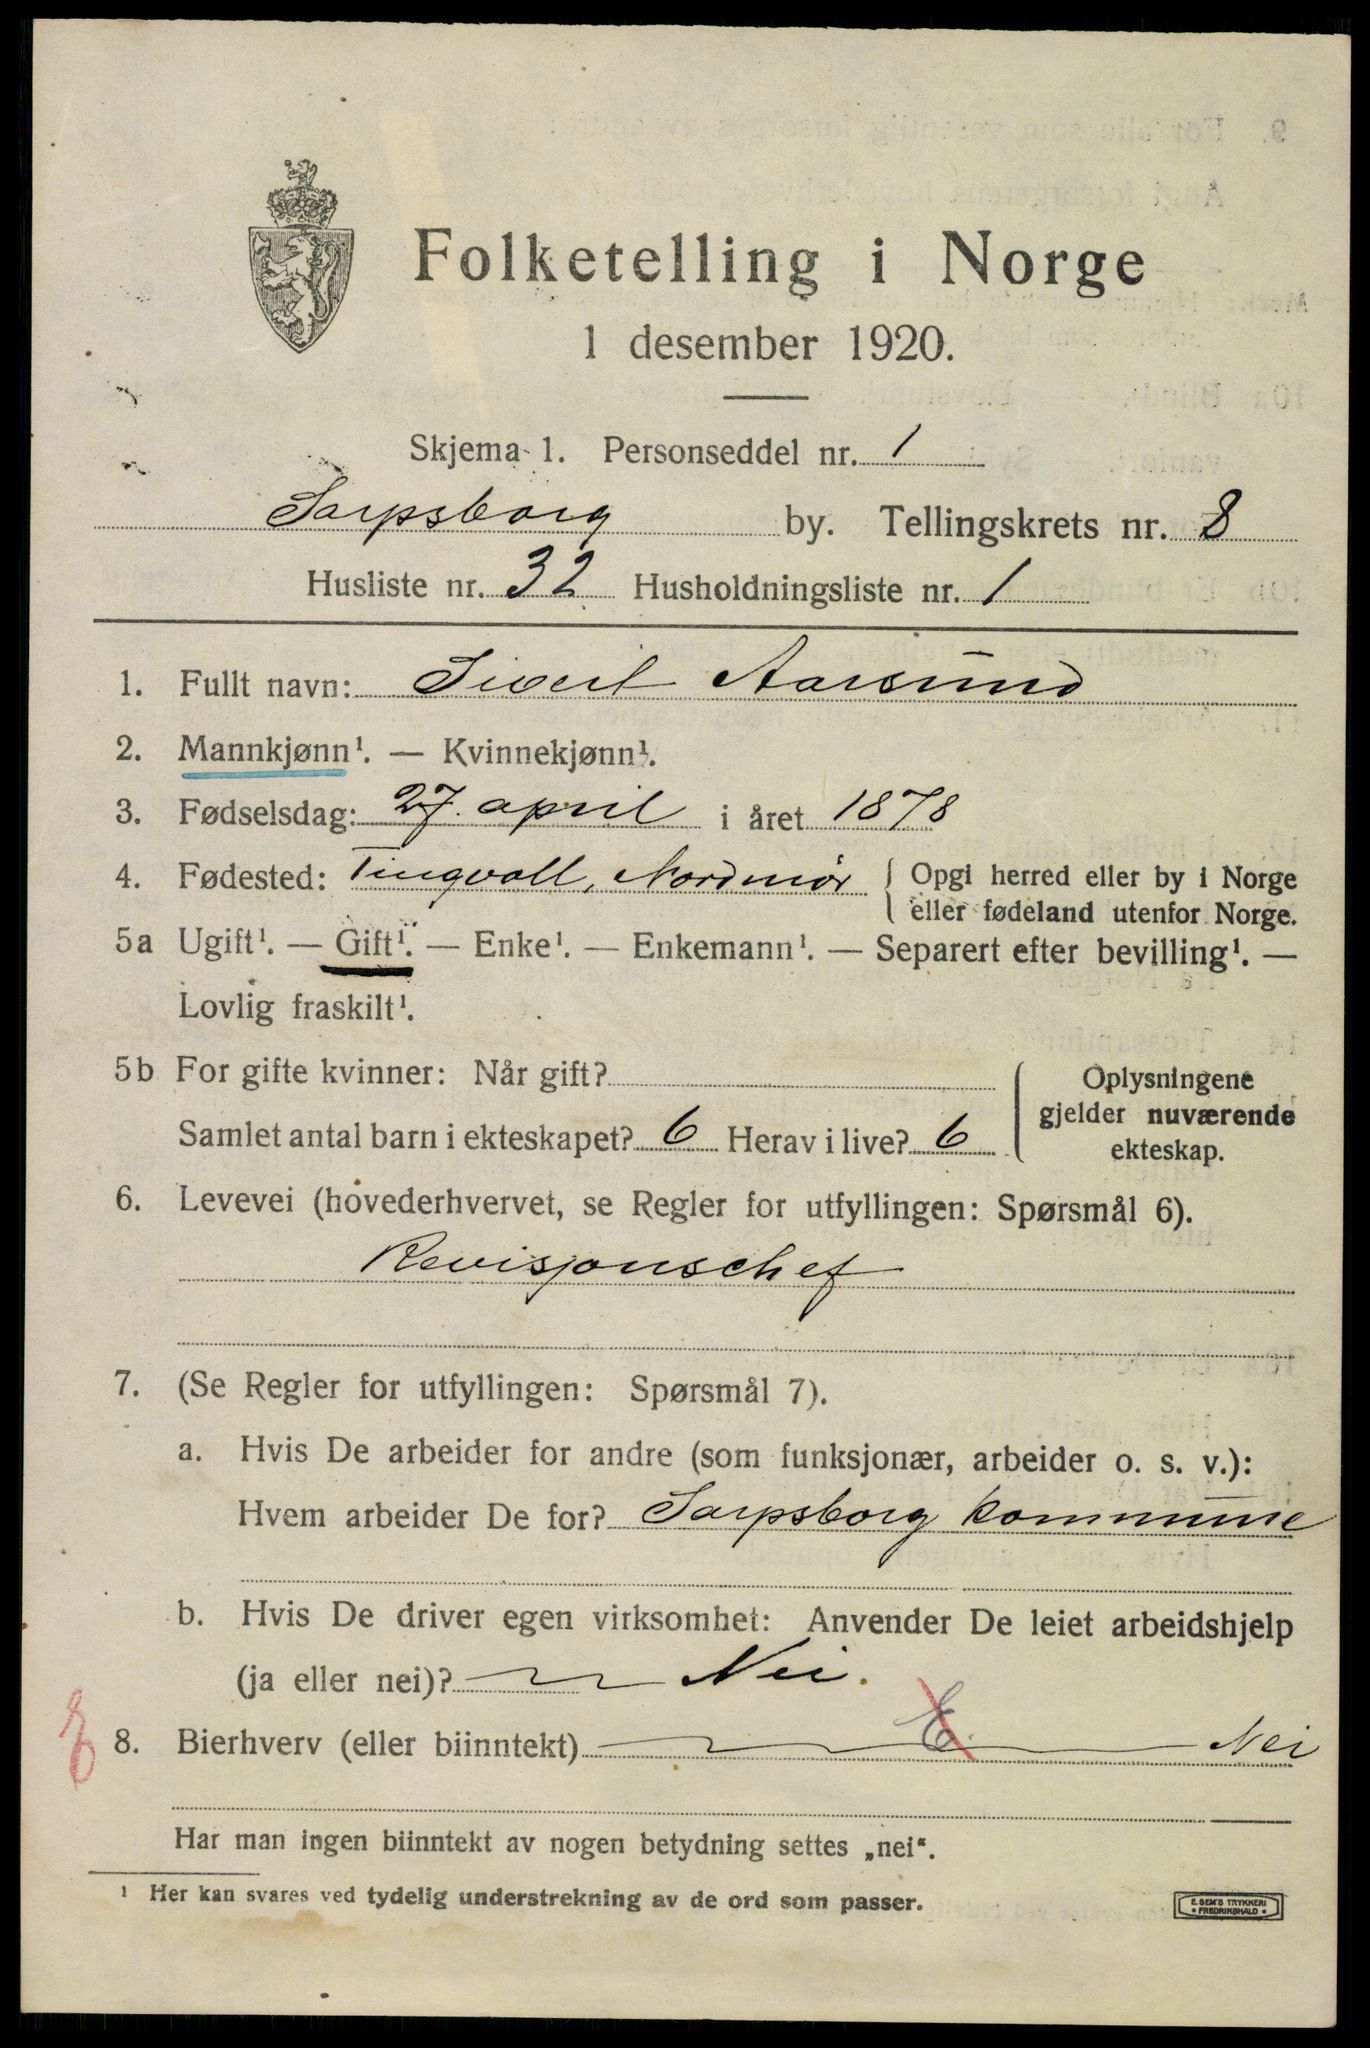 Folketelling i Norge
1 desember 1920.
Skjema 1. Personseddel nr. 1
Sarpsborg by. Tellingskrets nr. 8
Husliste nr. 32 Husholdningsliste nr. 1
1. Fullt navn: Sivert Aarsund
2. Mannkjønn¹. — Kvinnekjønn¹.
3. Fødselsdag: 27. april i året 1878
4. Fødested: Tingvoll, Nordmør { Opgi herred eller by i Norge
eller fødeland utenfor Norge.
5a Ugift¹. — Gift¹. — Enke¹. — Enkemann¹. — Separert efter bevilling¹. —
Lovlig fraskilt¹.
5b For gifte kvinner: Når gift?
Samlet antal barn i ekteskapet? 6 Herav i live? 6
{ Oplysningene
gjelder nuværende
ekteskap.
6. Levevei (hovederhvervet, se Regler for utfyllingen: Spørsmål 6).
Revisjonschef
7. (Se Regler for utfyllingen: Spørsmål 7).
a. Hvis De arbeider for andre (som funksjonær, arbeider o. s. v.):
Hvem arbeider De for? Sarpsborg kommune
b. Hvis De driver egen virksomhet: Anvender De leiet arbeidshjelp
(ja eller nei)? Nei.
8. Bierhverv (eller biinntekt) E. Nei
Har man ingen biinntekt av nogen betydning settes „nei“.
¹ Her kan svares ved tydelig understrekning av de ord som passer.
E. SEM'S TRYKKERI
• FREDRIKSHALD •